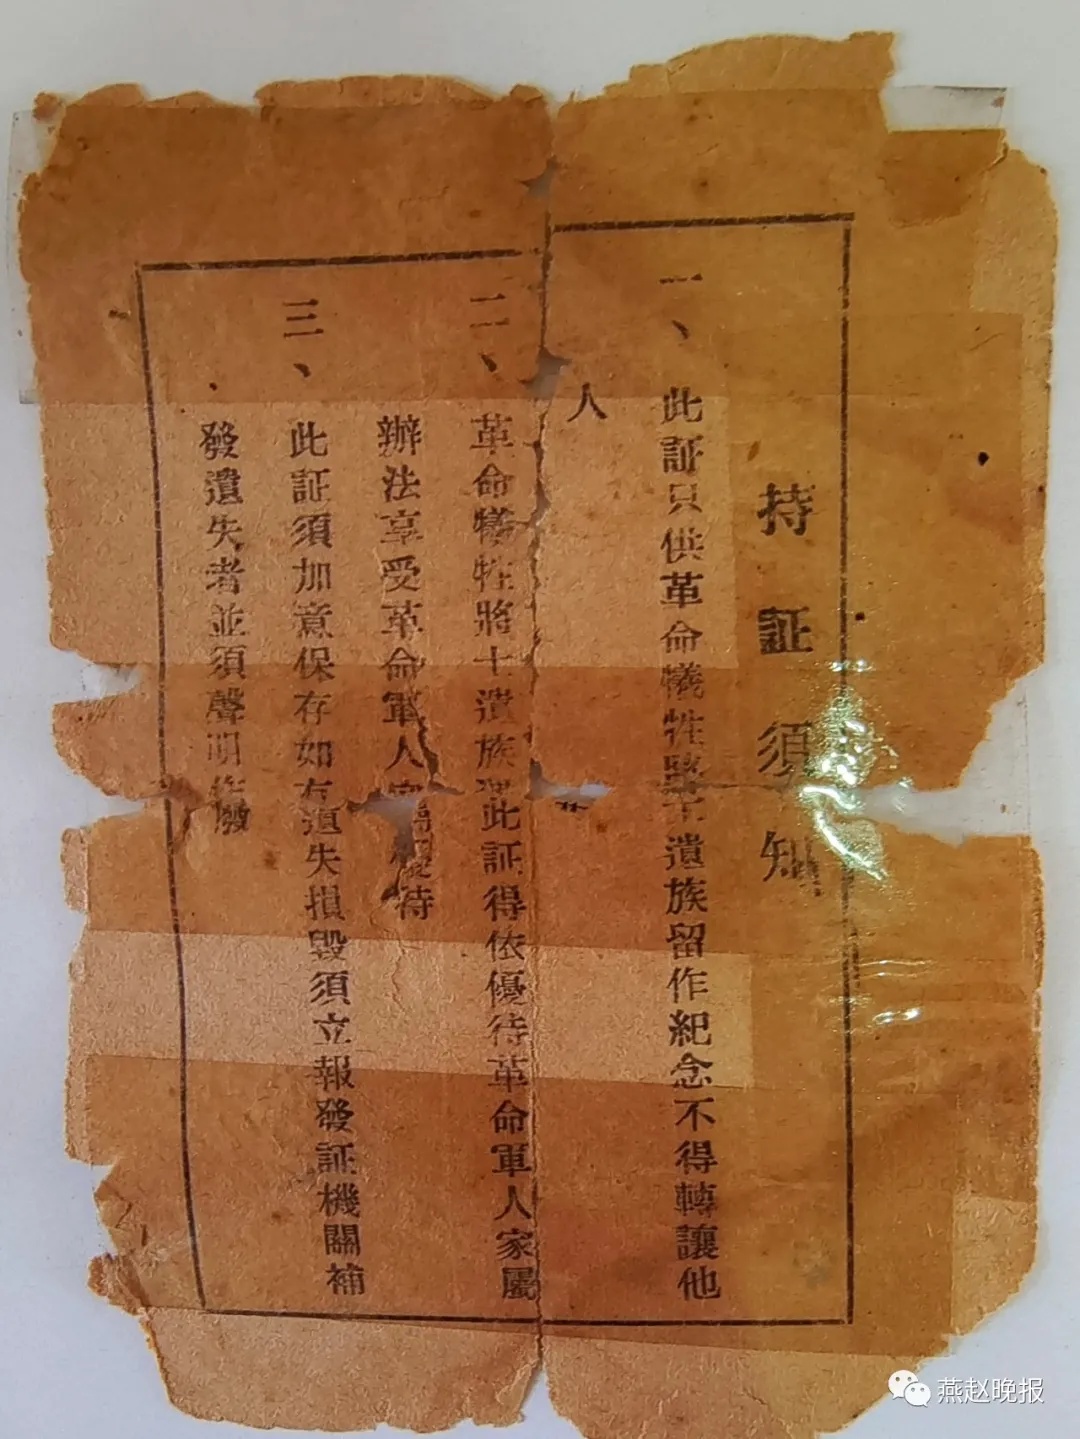 持証須知
一、此証只供革命犧牲將士遺族留作紀念不得轉讓他
人
二、革命犧牲將士遺族 此証得依優待革命軍人家屬
辦法享受革命軍人家屬優待
三、此証須加意保存如有遺失損毀須立報發証機關補
發遺失者並須聲明作廢
燕赵晚报